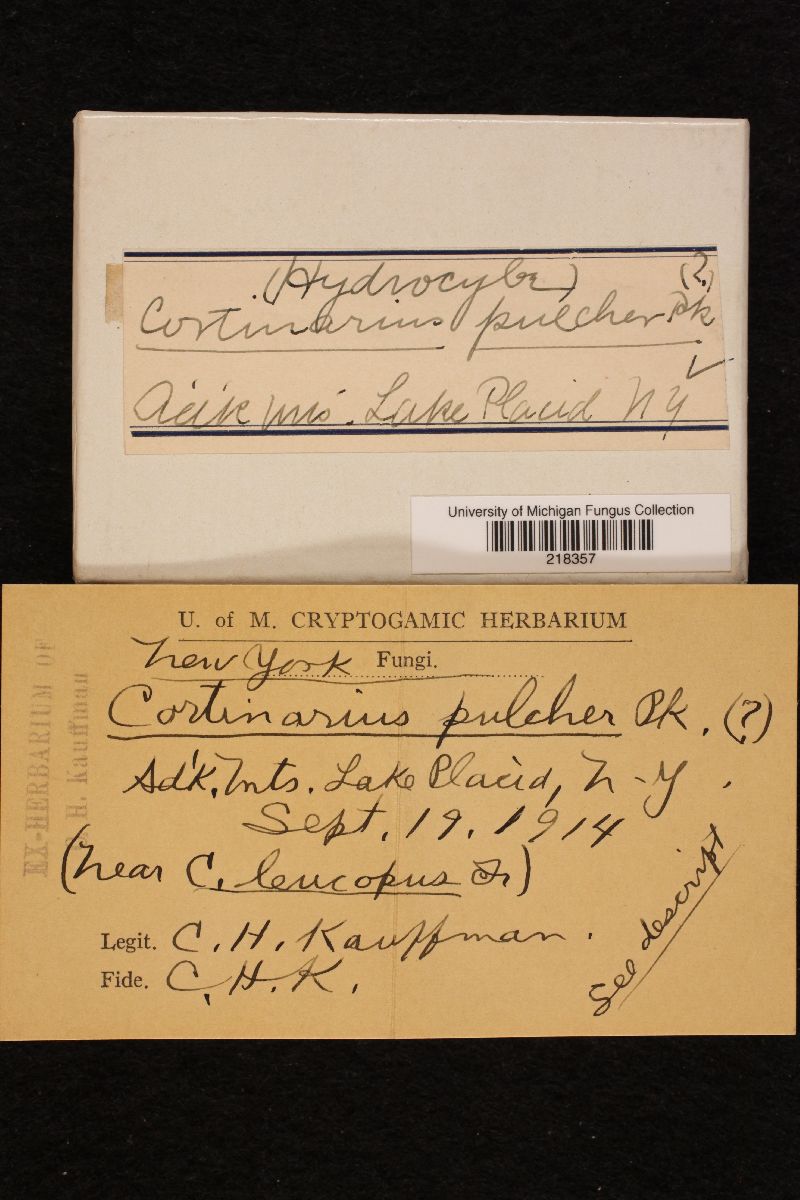 (Hydrocybe) (?)
Cortinarius pulcher Pk
Adk Mts. Lake Placid NY
University of Michigan Fungus Collection
218357
U. of M. CRYPTOGAMIC HERBARIUM
New York Fungi.
Cortinarius pulcher Pk. (?)
Adk. Mts. Lake Placid, N-Y.
Sept. 19. 1914
(near C. leucopus Fr)
Legit. C. H. Kauffman.
Fide. C. H. K.
See descript
EX-HERBARIUM OF
C. H. Kauffman